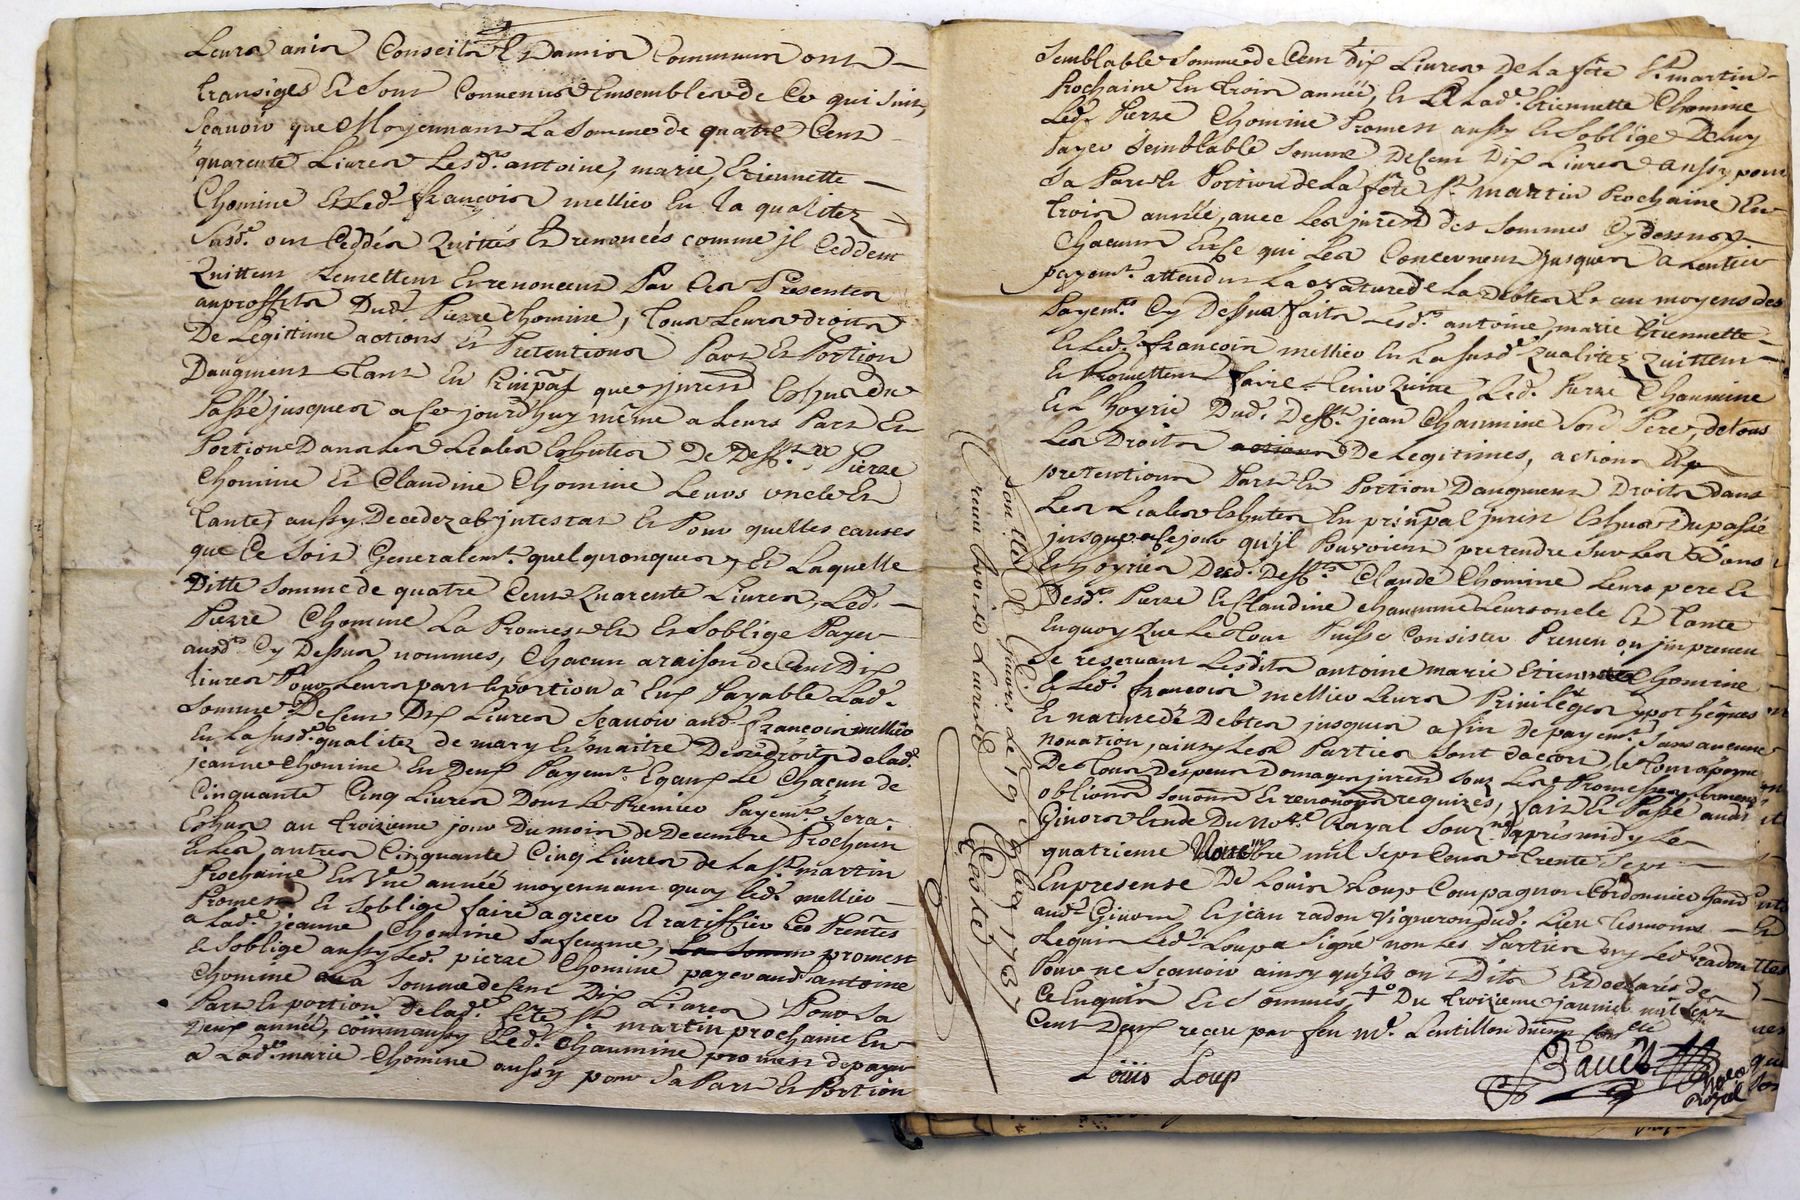 Leurs amis Conseils Et Damis Communs ont
transigés Et sont Convenus Ensembles de Ce qui suit,
Scavoir que Moyennant La somme de quatre Cent
quarente Livres Lesd.ts antoine, marie, Etiennette
Chomine Et Led.t françois mellier En La qualitez
susd.e ont Ceddés Quittés Et renoncés comme jl Ceddent
Quittent Remettent Et renoncent Par Ces Presentes
auproffits Dud.t Pierre Chomine, tous Leurs droits
De Legittime actions Et Pretentions Part Et Portion
Daugment tant En Prinpãl que jnterest Eschus du
Passé jusques a Ce jourd'huy même a Leurs Part Et
Portion Dans Les Leales Eschutes De Deff.ts Pierre
Chomine Et Claudine Chomine Leurs oncle Et
tante, aussy Decedez abjntestat Et Pour quelles causes
que Ce soit Generalem.t quelquonques, Et Laquelle
Ditte somme de quatre Cent Quarente Livres, Led.t
Pierre Chomine La Promest Et Soblige Payer
ausd.ts Cy Dessus nommes, Chacun a raison de Cent Dix
livres Pour Leurs part Et portion a Eux Payable Lad.e
somme De Cent Dix Livres Scavoir aud.t françois mellier
En La susd.e qualitez de mary Et maitre Des droits de lad.e
jeanne Chomine En Deux Payem.ts Egaux Le Chacun de
Cinquante Cinq Livres Dont Le Premier Payem.t sera
Eschus au troizieme jour Du mois de Decembre Prochain
Et Les autres Cinquante Cinq Livres de La S.t martin
Prochaine En Une année moyennant quoy led.t mellier
Promest Et soblige faire agreer Et ratiffier Ces Prentes
a Lad.e jeanne Chomine sa femme, promest
Et soblige aussy Led.t pierre Chomine payer aud.t antoine
Chomine La somme de Cent Dix Livres Pour sa
Part Et portion De lad.e fête S.t martin prochaine En
Deux année, comm aussy Led.t Chaumine promest de payer
a Lad.e marie Chomine aussy pour sa Part Et Portion
semblable somme de Cent Dix Livres De La fête S.t martin
Prochaine En trois année, Et A Lad.e Etiennette Chomine
Led.t Pierre Chomine Promest aussy Et soblige De luy
Payer semblable somme De Cent Dix Livres aussy pour
sa Part Et Portion de La fête S.t martin Prochaine En
trois année, avec Les jnterest des sommes Cy dessus
Chacuns En Ce qui Les Concernent jusques a Lentier
payem.t attendus La nature de La Debtes Et au moyens des
Payem.ts Cy Dessus faits Lesd.ts antoine marie Etiennette
Et Led.t françois mellier En La susd.e Qualitez Quittent
Et Promettent faire tenir Quitte Led.t Pierre Chaumine
Et Lhoyrie Dud.t Deff.t jean Chaumine son Pere, de tous
Les Droits De Legitimes, actions Et
pretentions Part Et Portion Daugment Droits dans
Les Leales Eschutes En prinpal jnterest Eschus Du passé
jusque a Ce jour qu'jl Pouvoient pretendre sur Les Biens
Et hoyries Dud.t Deff.t Claude Chomine Leurs pere Et
Desd.ts Pierre Et Claudine Chaumine Leurs oncle Et tante
En quoy Que Le tout Puisse Consister Preveu ou jmpreveu
se reservant Lesdits antoine marie Etiennette Chomine
Et Led.t françois mellier Leurs Privileges ypothêques
Et nature de Debtes jusques a fin de payem.t sans aucune
novation, ainsy Les Parties sont dacord, le tout a peyne
De tous Despens Domages jnterest sous Les Promesses serment
oblions soumons Et renonõns requizes, fait Et Passé aud.t
Givors Etude Du No.re Royal souz.né après midy Le
quatrieme Novembre mil sept Cent trente sept
En presense De Louis Loup Compagnon Cordonnier
aud.t Givors Et jean radon vigneron dud.t Lieu tesmoins
Lequin Led.t Loup a signé non Les Parties ny Led.t radon
Pour ne Scavoir ainsy qu'ils on Dits Et Declarés de
Ce Enquis Et sommés, Du troizieme janvier mil sept
Cent Deux receu par feu m.e Lentillon
Louis Loup
Bauet
No.re Royal
Con.llé a Givors Le 19 9bre 1737